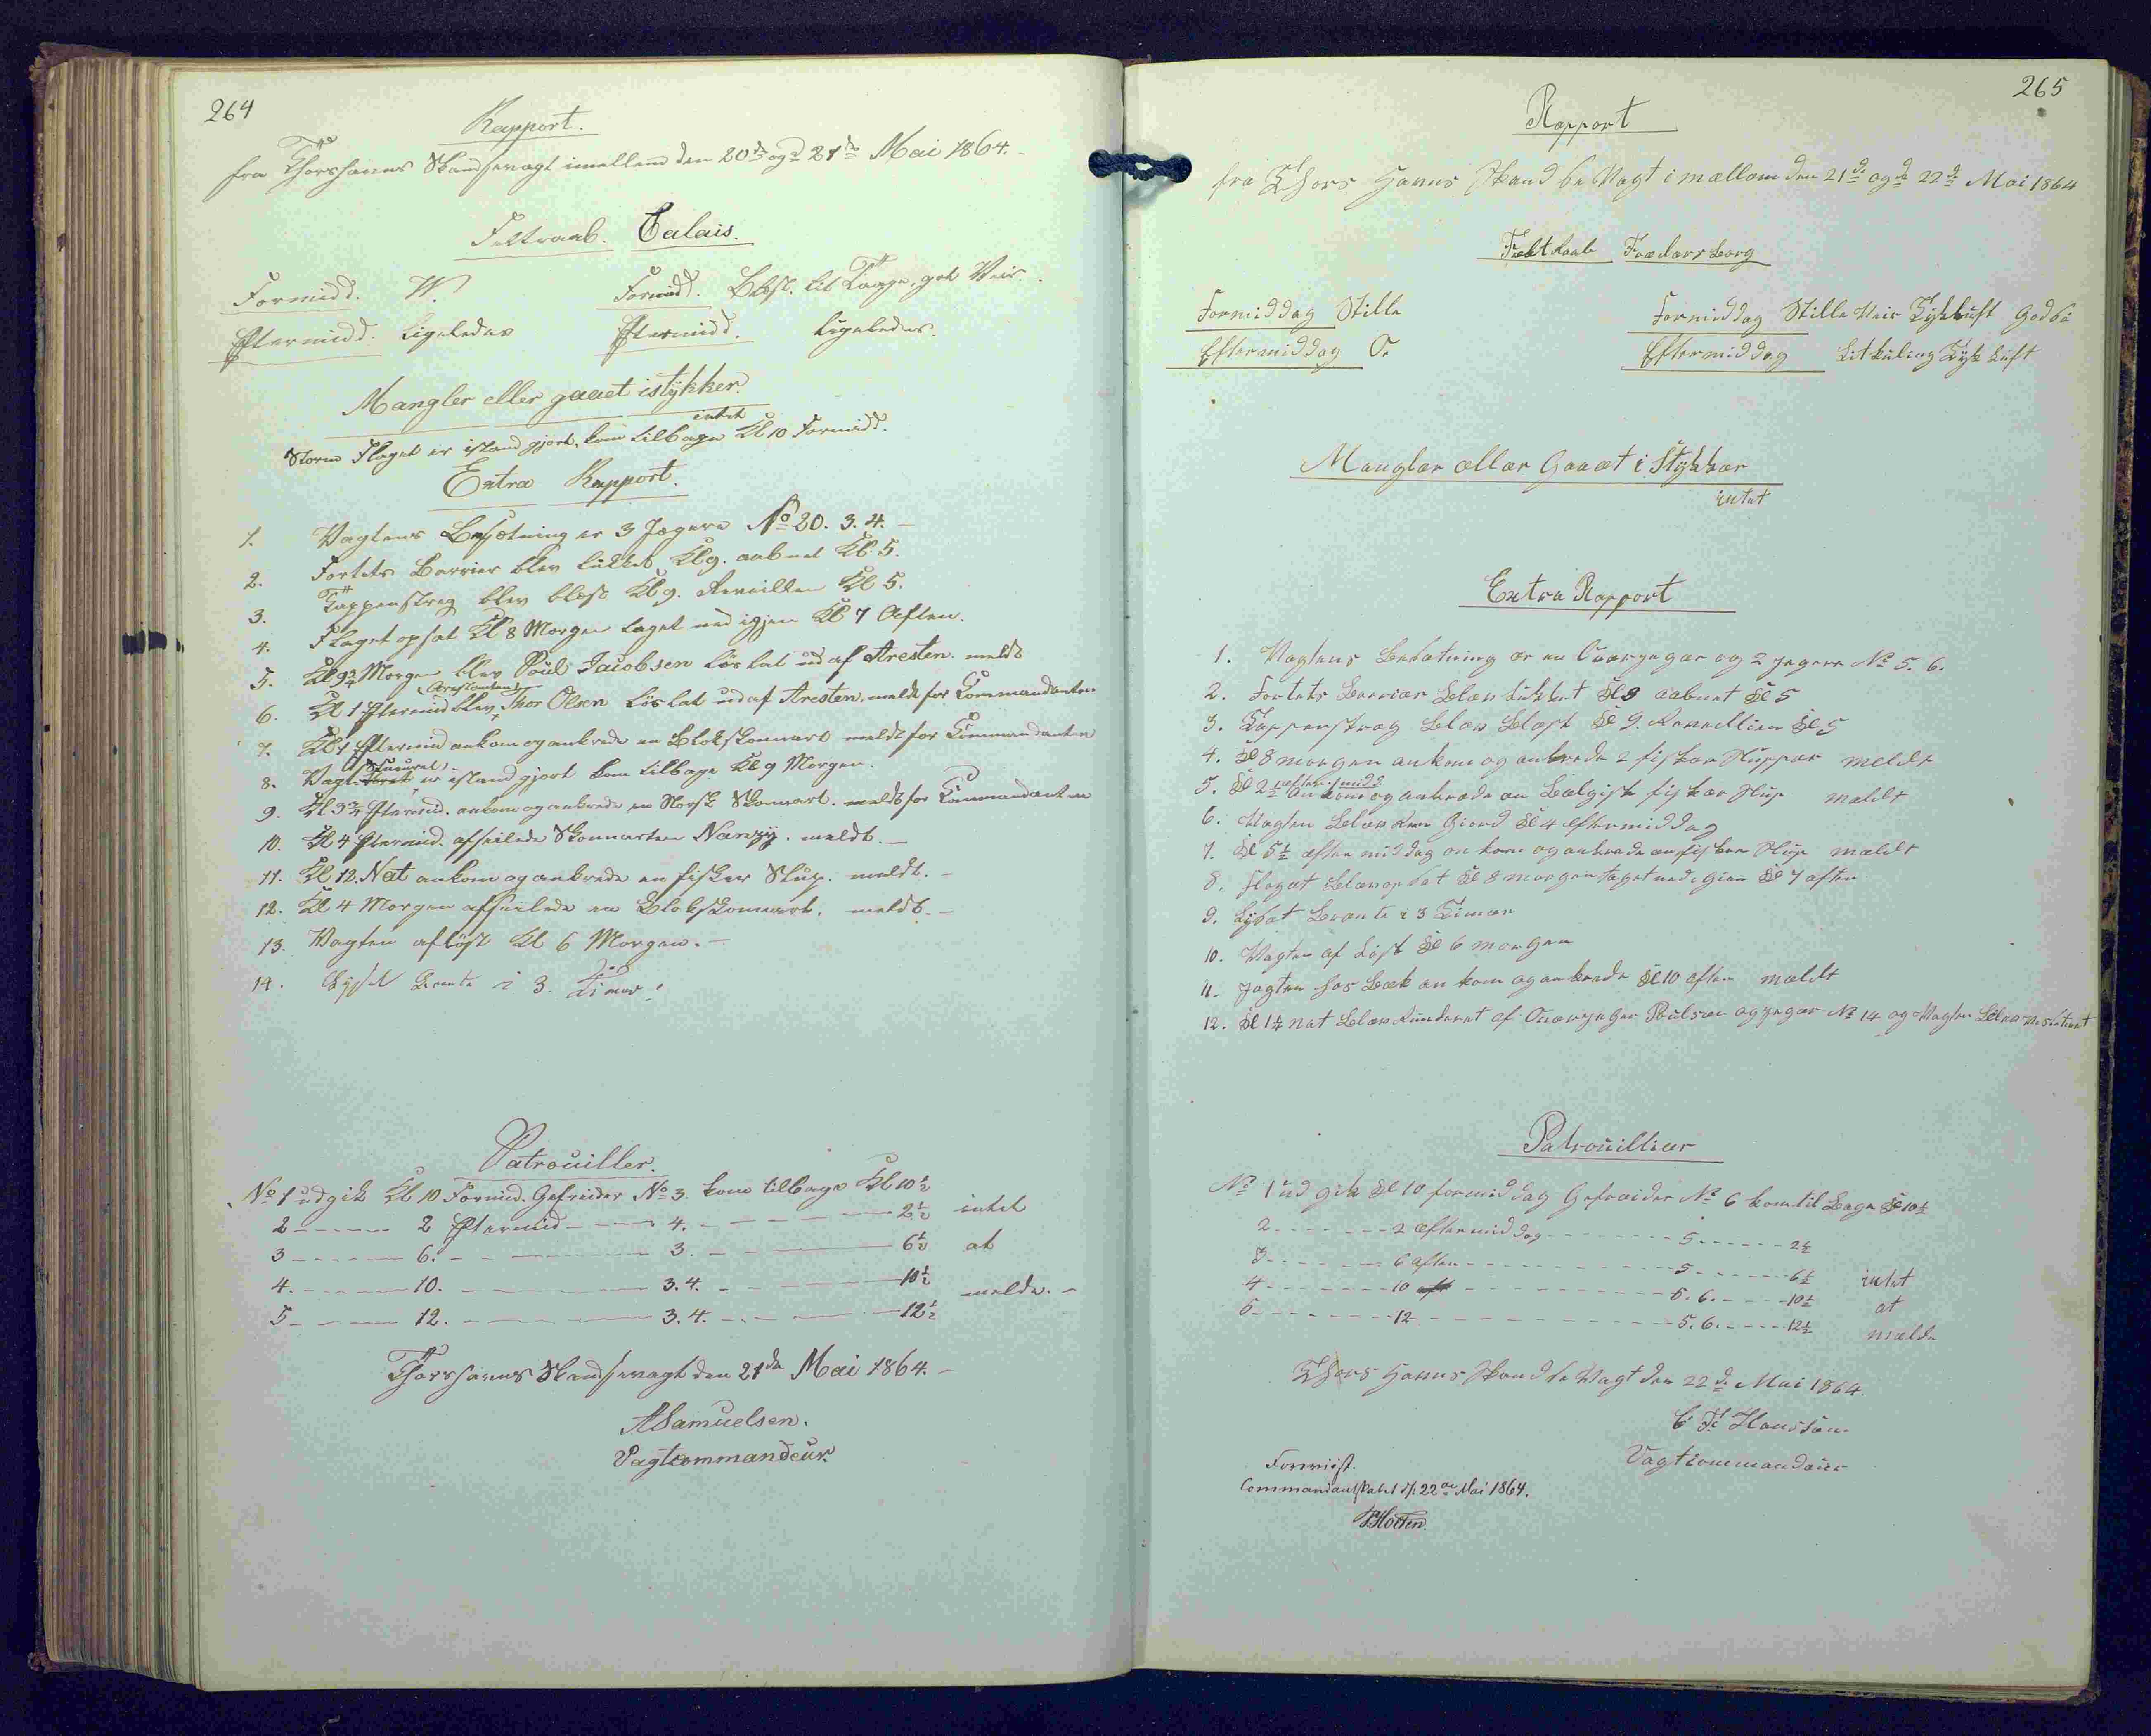 264
Rapport.
fra Thorshavns Skandsevagt imellem den 20de og 21de Mai 1864.
Feltraab. Calais.
Formidd. W. Formidd. Blæst. til Taage, got Veir.
Eftermidd. Ligeledes Eftermidd. ligeledes.
Mangler eller gaaet istÿkker.
intet
Storm Flaget er istandgjort, kom tilbage Kl 10 Formidd.
Extra Rapport.
1. Vagtens Besætning er 3 Jægere No 20. 3. 4.
2. Fortets Barrier blev lukket Kl 9. aabnet Kl. 5.
3. Tappenstreg blev blæst Kl 9. Reveillen Kl. 5.
4. Flaget opsat Kl 8 Morgen taget ned igjen Kl 7 Aften.
5. Kl 9 3/4 Morgen blev Poul Jacobsen löslat ud af Aresten. meldt
6. Kl 1 Eftermid blev Arestanten Thor Olsen löslat ud af Aresten. meldt for Commandanten
7. Kl 1 Eftermid ankom og ankrede en Blokskonnart meldt for Commandanten
8. Vagt er istandgjort kom tilbage Kl 9 Morgen.
9. Kl 3 3/4 Eftermid. ankom og ankrede en Norsk Skonnart. meldt for Commandanten
10. Kl 4 Eftermid. afseilede Skonnarten Nanzÿ. meldt.
11. Kl 12. Nat ankom og ankrede en fisker Slup. meldt.
12. Kl 4 Morgen afseilede en Blokskonnart. meldt.
13. Vagten aflöst Kl 6 Morgen.
14. Lÿset Brente i 3. Timer.
Patrouiller.
No 1 udgik Kl 10 Formid. Gefreider No 3. kom tilbage Kl 10 1/2
2 2 Eftermid 4. 2 1/2 intet
3 6. 3. 6 1/2 at
4. 10. 3. 4. 10 1/2 melde.
5 12. 3. 4. 12 1/2
Thorshavns Skandsevagt den 21de Mai 1864.
ASamuelsen.
Vagtcommandeur.
265
Rapport
fra Thors Havns Skandse Vagt imællem den 21de og de 22de Mai 1864
Fæltraab Frædersborg
Formiddag Stille Formiddag Stille Veir Tÿkluft
Eftermiddag O. Eftermiddag Litkuling Tÿk Luft
Manglær ællær Gaaæt i Stÿkkær
intet
Extra Rapport
1. Vagtens Besætning ær en Overjegær og 2 Jegere No 5. 6.
2. Fortets Barriær Blæv Lukket Kl 9 aabnet Kl 5
3. Tappenstræg Blæv Blæst Kl 9. Revellien Kl 5
4. Kl 8 morgen ankom og ankrede 2 fiskær Sluppær meldt
5. Kl 2 1/2 æftermidd ankom og ankræde en Bælgisk fiskær Slup mældt
6. Vagten Blæv Ren Giord Kl 4 Eftermiddag
7. Kl 5 1/2 æftermiddag ankom og ankrede en fisker Slup mældt
8. Flagæt Blæv opsat Kl 8 morgen taget ned igien Kl 7 aften
9. Lÿsæt Brænte i 3 Timær
10. Vagten af Löst Kl 6 morgen
11. Jagten ankom og ankrede Kl 10 aften mældt
12. Kl 1 1/4 nat Blæv Runderet af Overjeger Poulsen og jegær No 14 og Vagten Blæv Visiteret
Patrouillier
No 1 ud gik Kl 10 formiddag Gefreider No 6 kom til Bage Kl 10 1/2
2 2 æftermiddag 5 2 1/2
3 6 aften 5 6 1/2 intet
4 10 5. 6. 10 1/2 at
5 12 5. 6. 12 1/2 mælde
Thors Havns Skandse Vagt den 22de Mai 1864.
Hanssen
Vagtcommandeur
Foreviist.
Commandantskabet d/: 22de Mai 1864.
Holten